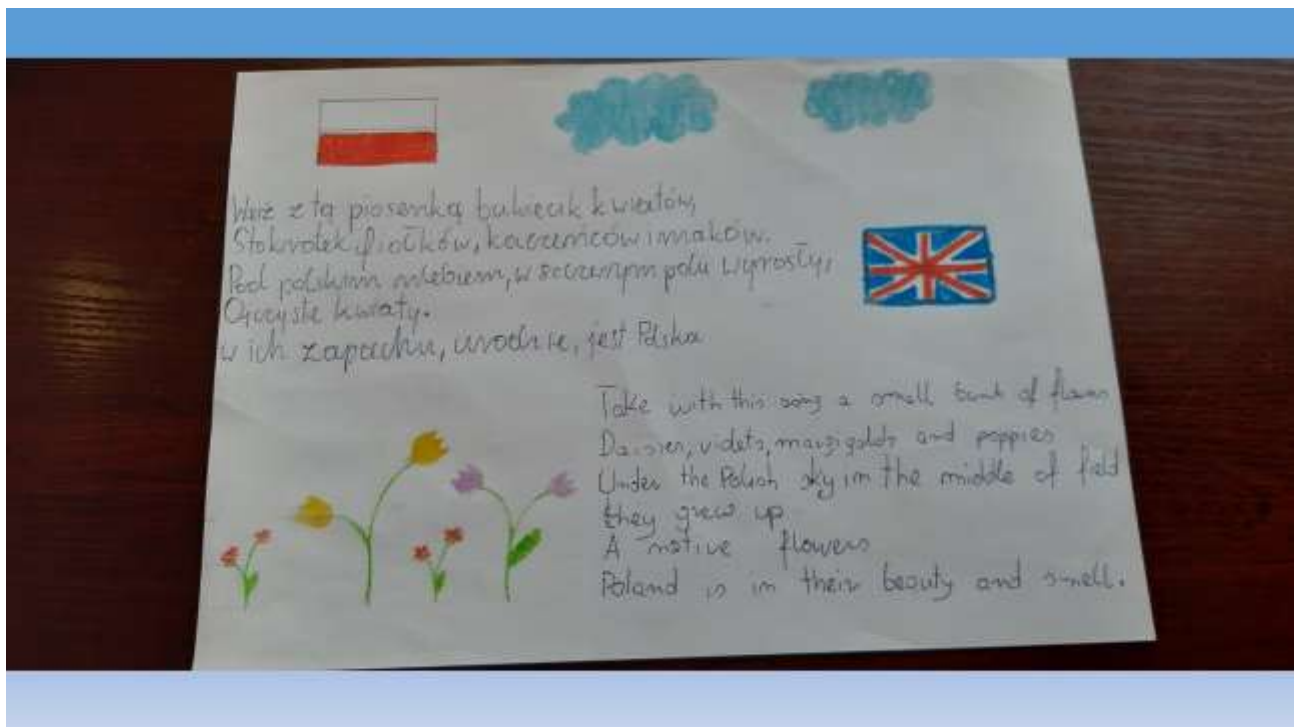 Weź z tą piosenką bukiecik kwiatów,
Stokrotek, fiołków, kaczeńców i maków.
Pod polskim niebiem, w szczerym polu wyrosły,
Ojczyste kwiaty.
w ich zapachu, urodzie, jest Polska
Take with this song a small bunk of flowers
Daisies, violets, marigolds and poppies
Under the Polish sky in the middle of field
they grew up
A native flowers
Poland is in their beauty and smell.